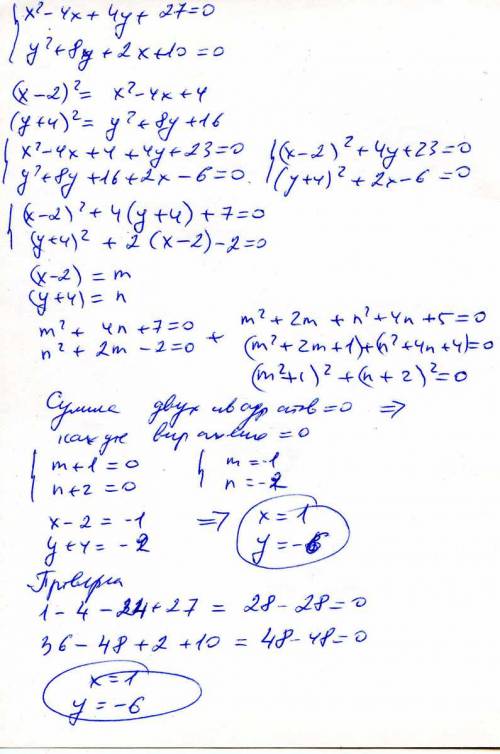 x²-4x+4y+27=0
y²+8y+2x+10=0
(x-2)²= x²-4x+4
(y+4)²= y²+8y+16
x²-4x+4+4y+23=0 (x-2)²+4y+23=0
y²+8y+16+2x-6=0. (y+4)²+2x-6=0
(x-2)²+4(y+4)+7=0
(y+4)²+2(x-2)-2=0
(x-2)=m
(y+4)=n
m²+4n+7=0 + m²+2m+n²+4n+5=0
n²+2m-2=0 (m²+2m+1)+(n²+4n+4)=0
(m²+1)²+(n+2)²=0
Сумма двух квадратов=0 =>
каждое выражение=0
m+1=0 m=-1
n+2=0 n=-2
x-2=-1 => x=1
y+4=-2 y=-6
Проверка
1-4-24+27=28-28=0
36-48+2+10=48-48=0
x=1
y=-6